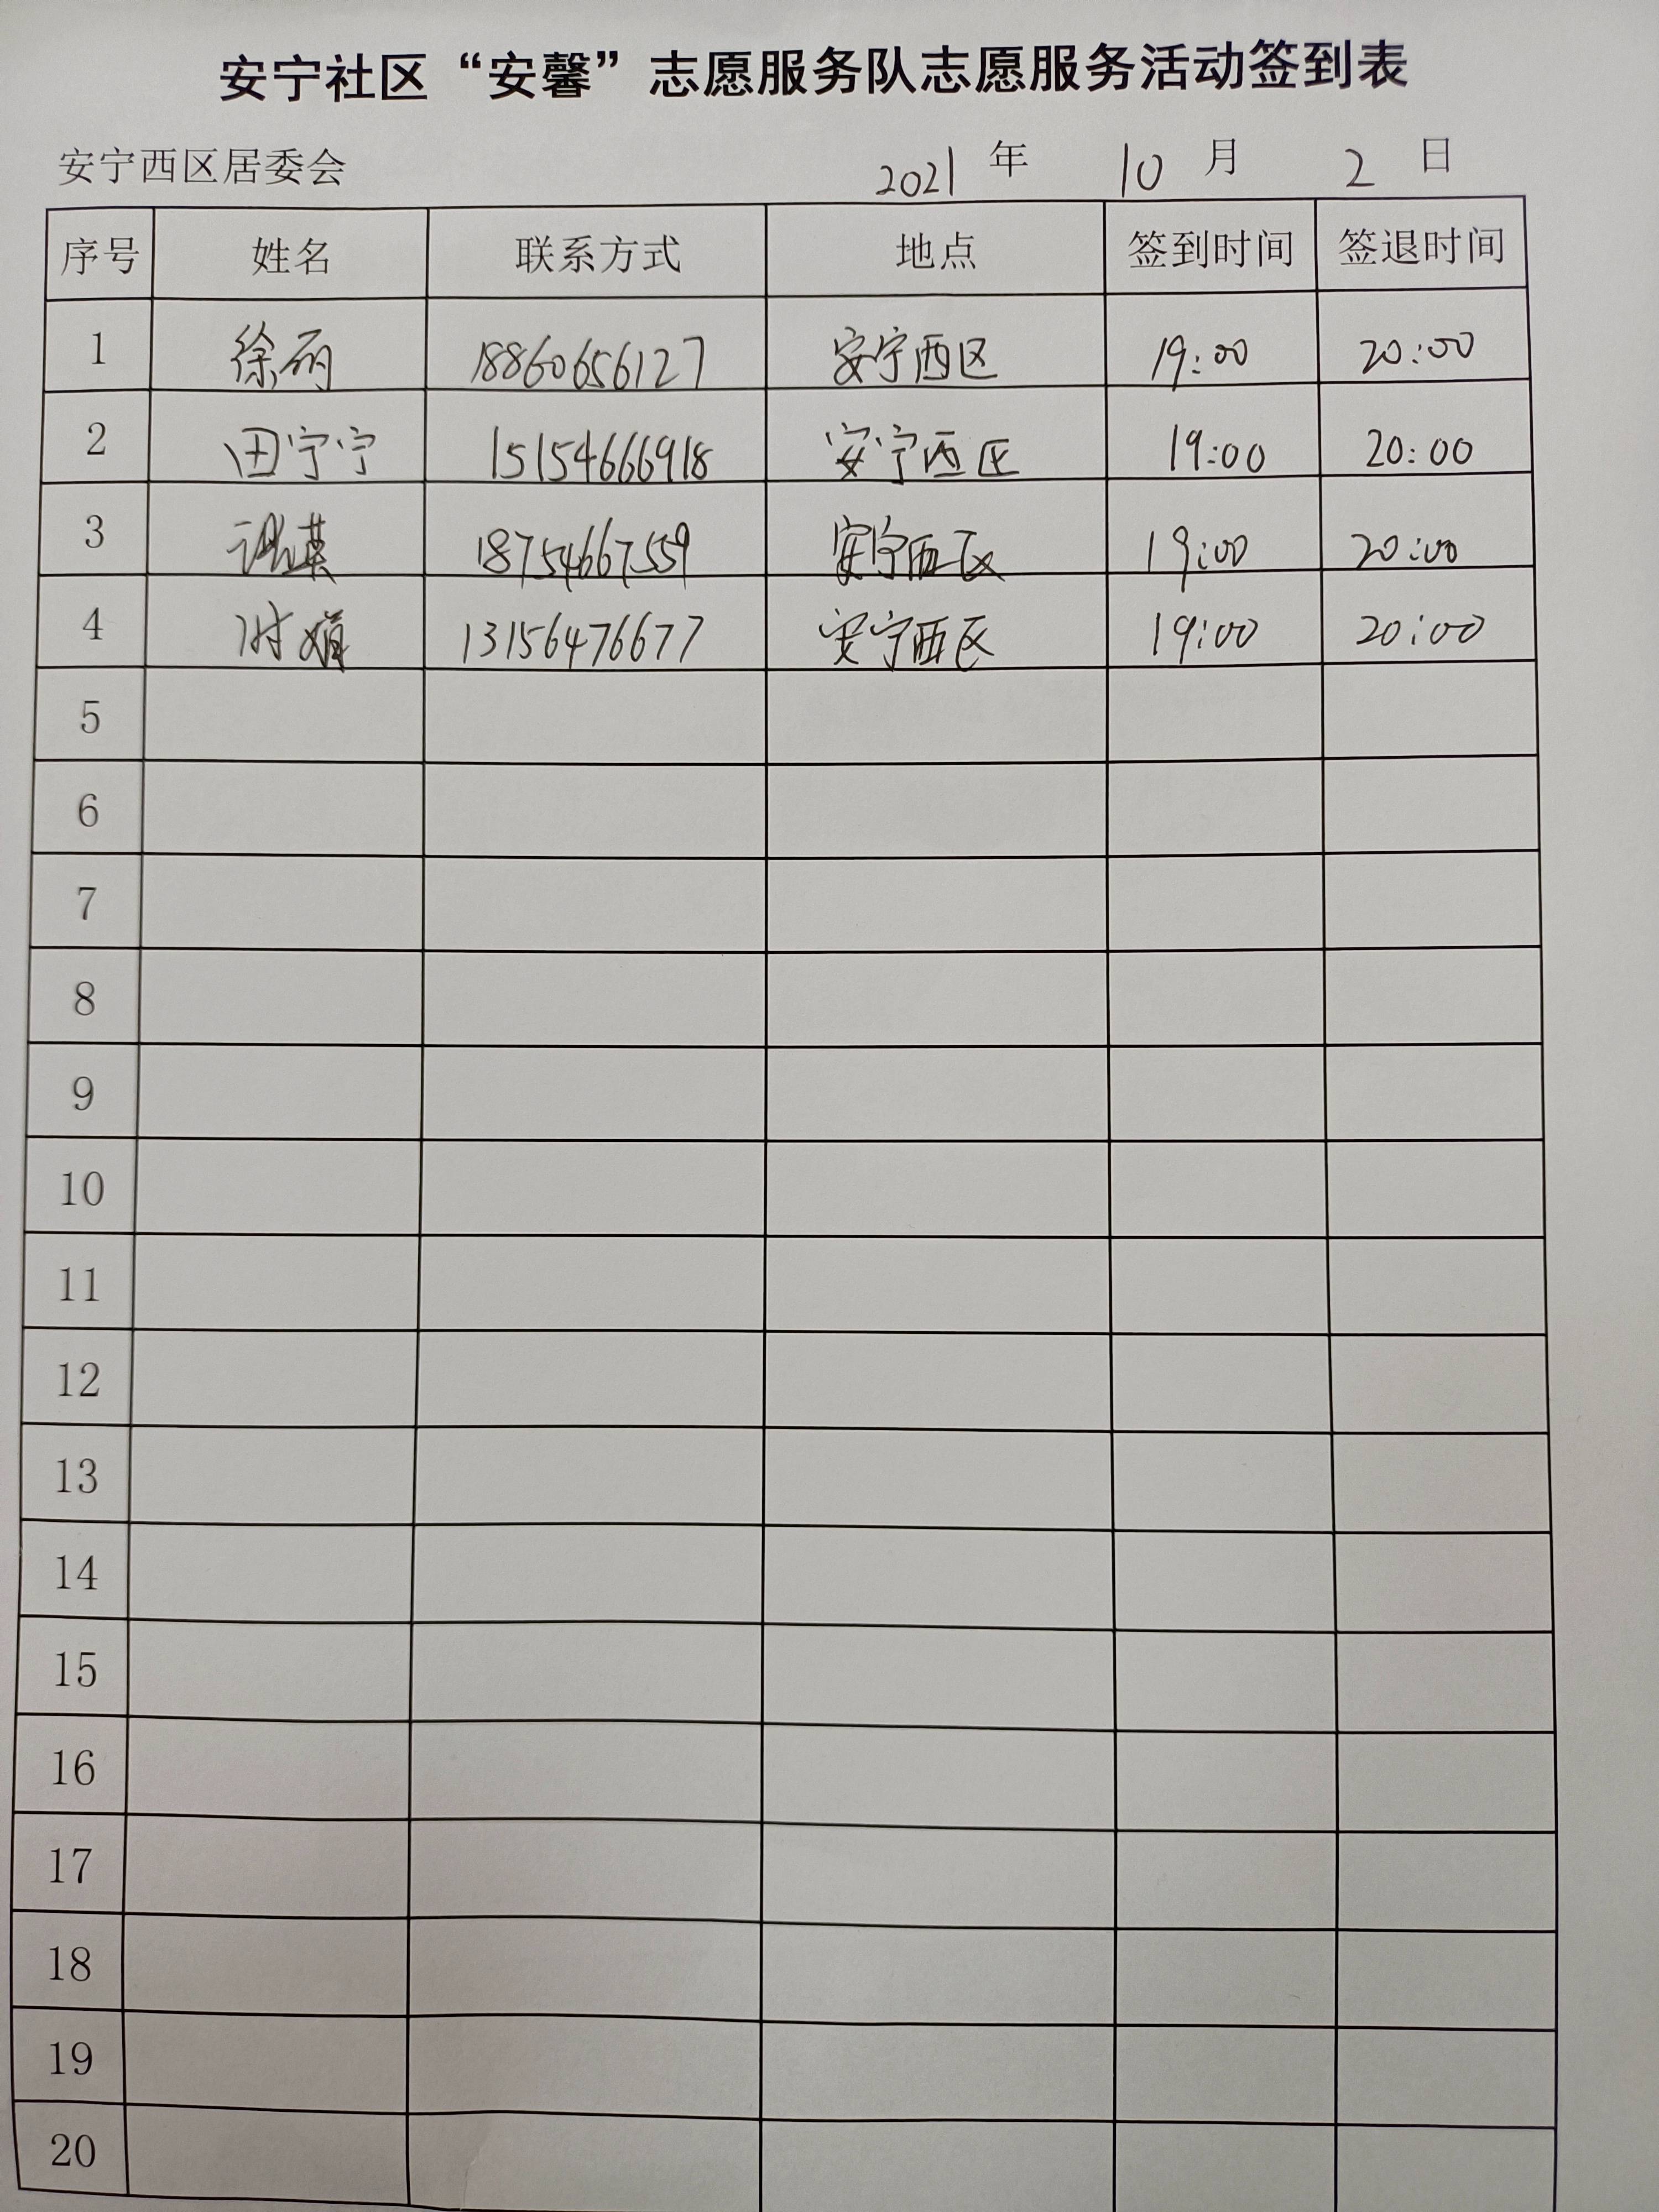 安宁社区“安馨”志愿服务队志愿服务活动签到表
安宁西区居委会 2021 年 10 月 2 日
序号 姓名 联系方式 地点 签到时间 签退时间
1 徐丽 18860656127 安宁西区 19:00 20:00
2 田宁宁 15154666918 安宁西区 19:00 20:00
3 18754667559 安宁西区 19:00 20:00
4 时娟 13156476677 安宁西区 19:00 20:00
5
6
7
8
9
10
11
12
13
14
15
16
17
18
19
20